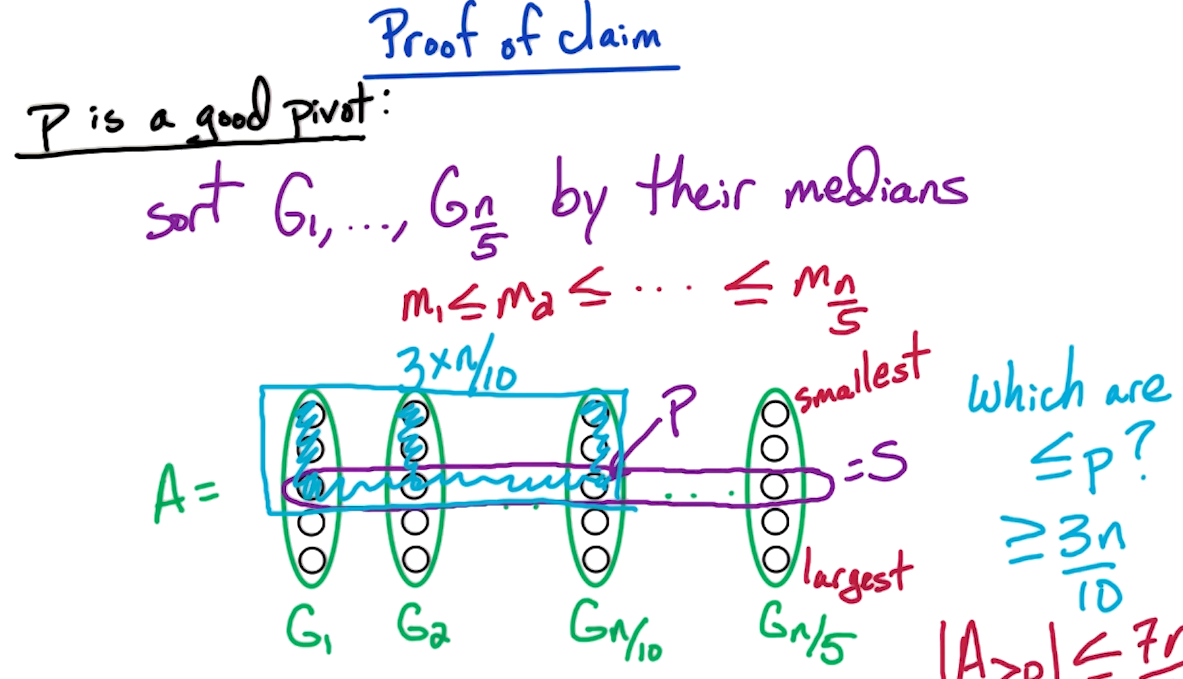 Proof of claim
P is a good pivot:
sort G₁, ..., G_{n/5} by their medians
m₁ ≤ m₂ ≤ ... ≤ m_{n/5}
3×n/10
P
smallest
A =
= S
largest
G₁ G₂ G_{n/10} G_{n/5}
which are
≤ p?
≥ 3n/10
|A_{>p}| ≤ 7n